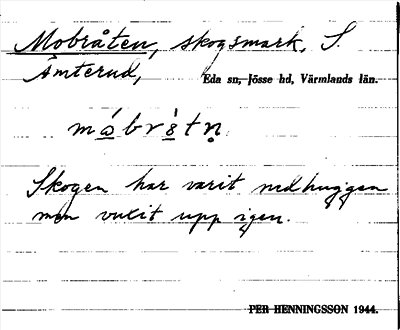 Mobråten, skogsmark, S.
Åmterud,
Eda sn, Jösse hd, Värmlands län.
Skogen har varit nedhuggen
men vuxit upp igen.
PER HENNINGSSON 1944.